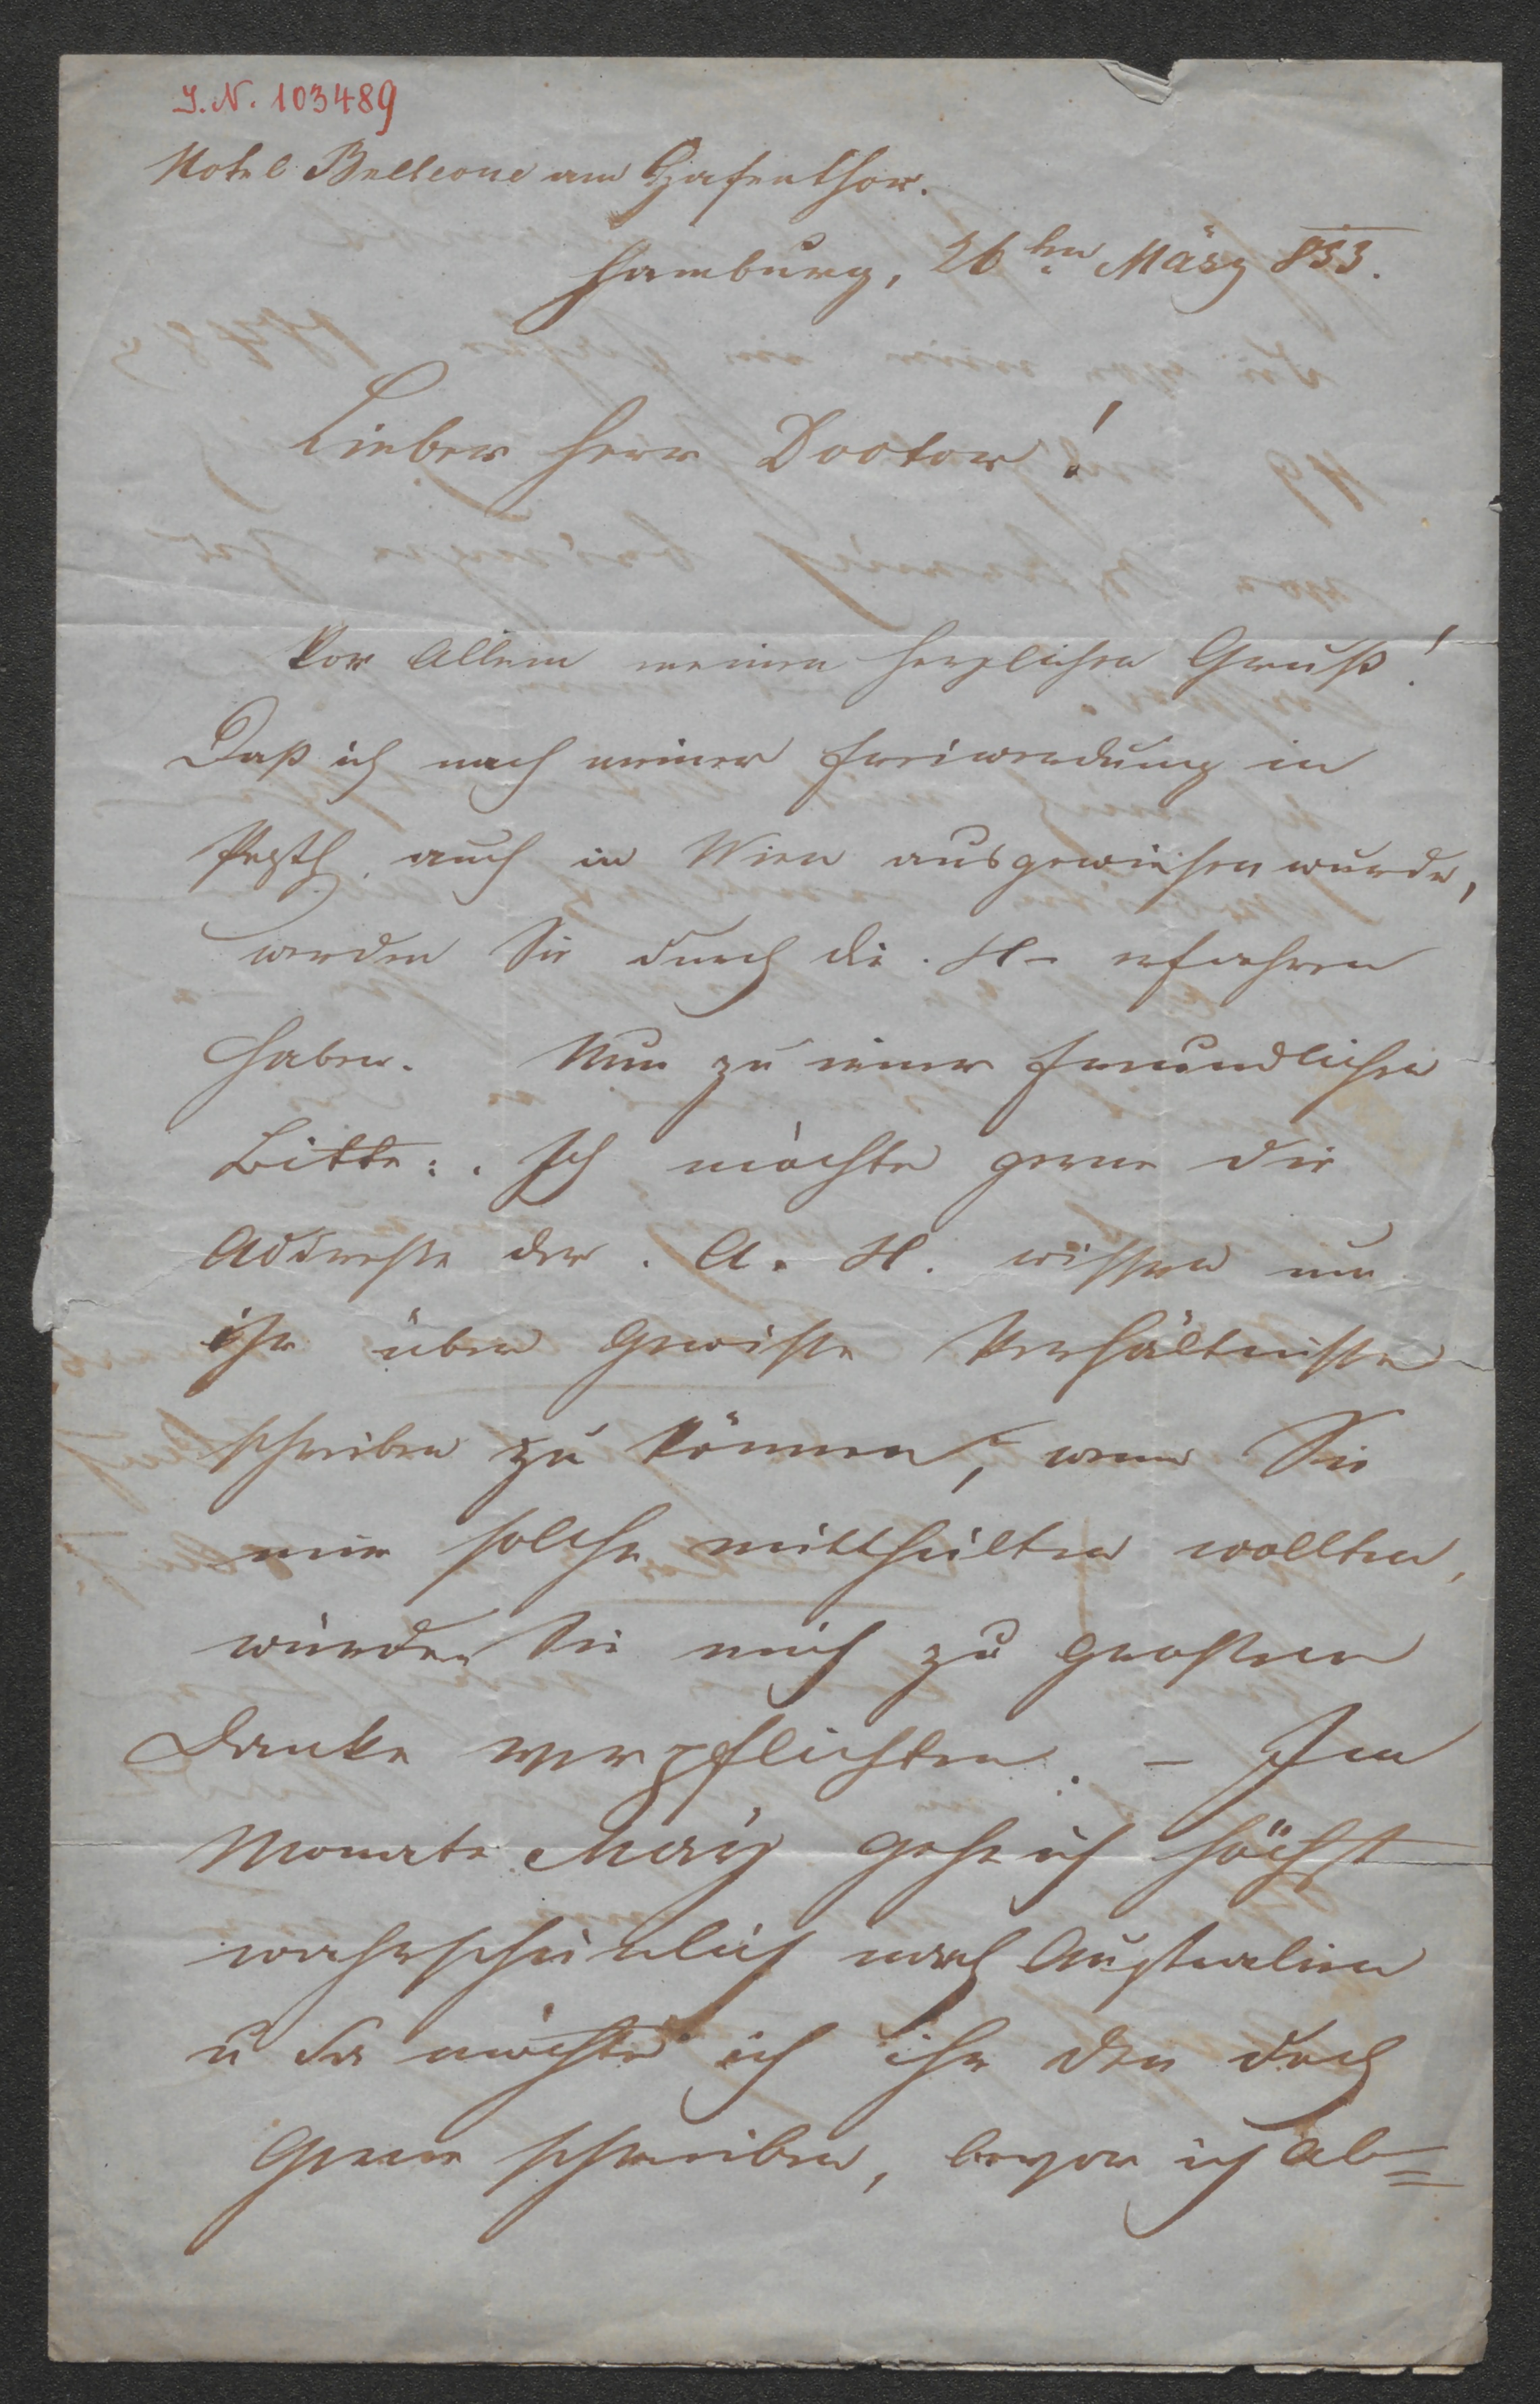 I.N. 103489
Hotel Bellevue am Hafenthor.
Hamburg, 26ten März 853.
Lieber Herr Doctor!
Vor Allem meinen herzlichen Gruß!
Daß ich nach meiner Freiwerdung in
Pesth, auch in Wien ausgewiesen wurde,
werden Sie durch die . H– erfahren
haben. Nun zu einer freundlichen
Bitte: . Ich möchte gerne die
Addresse der . A. H. wissen um
ihr über Gewisse Verhältnisse
schreiben zu können, wenn Sie
mir solche mittheilten wollten,
würden Sie mich zu großem
Danke verpflichten. – Im
Monate May gehe ich höchst
wahrscheinlich nach Australien
u da möchte ich ihr den doch
Gerne schreiben, bevor ich ab=